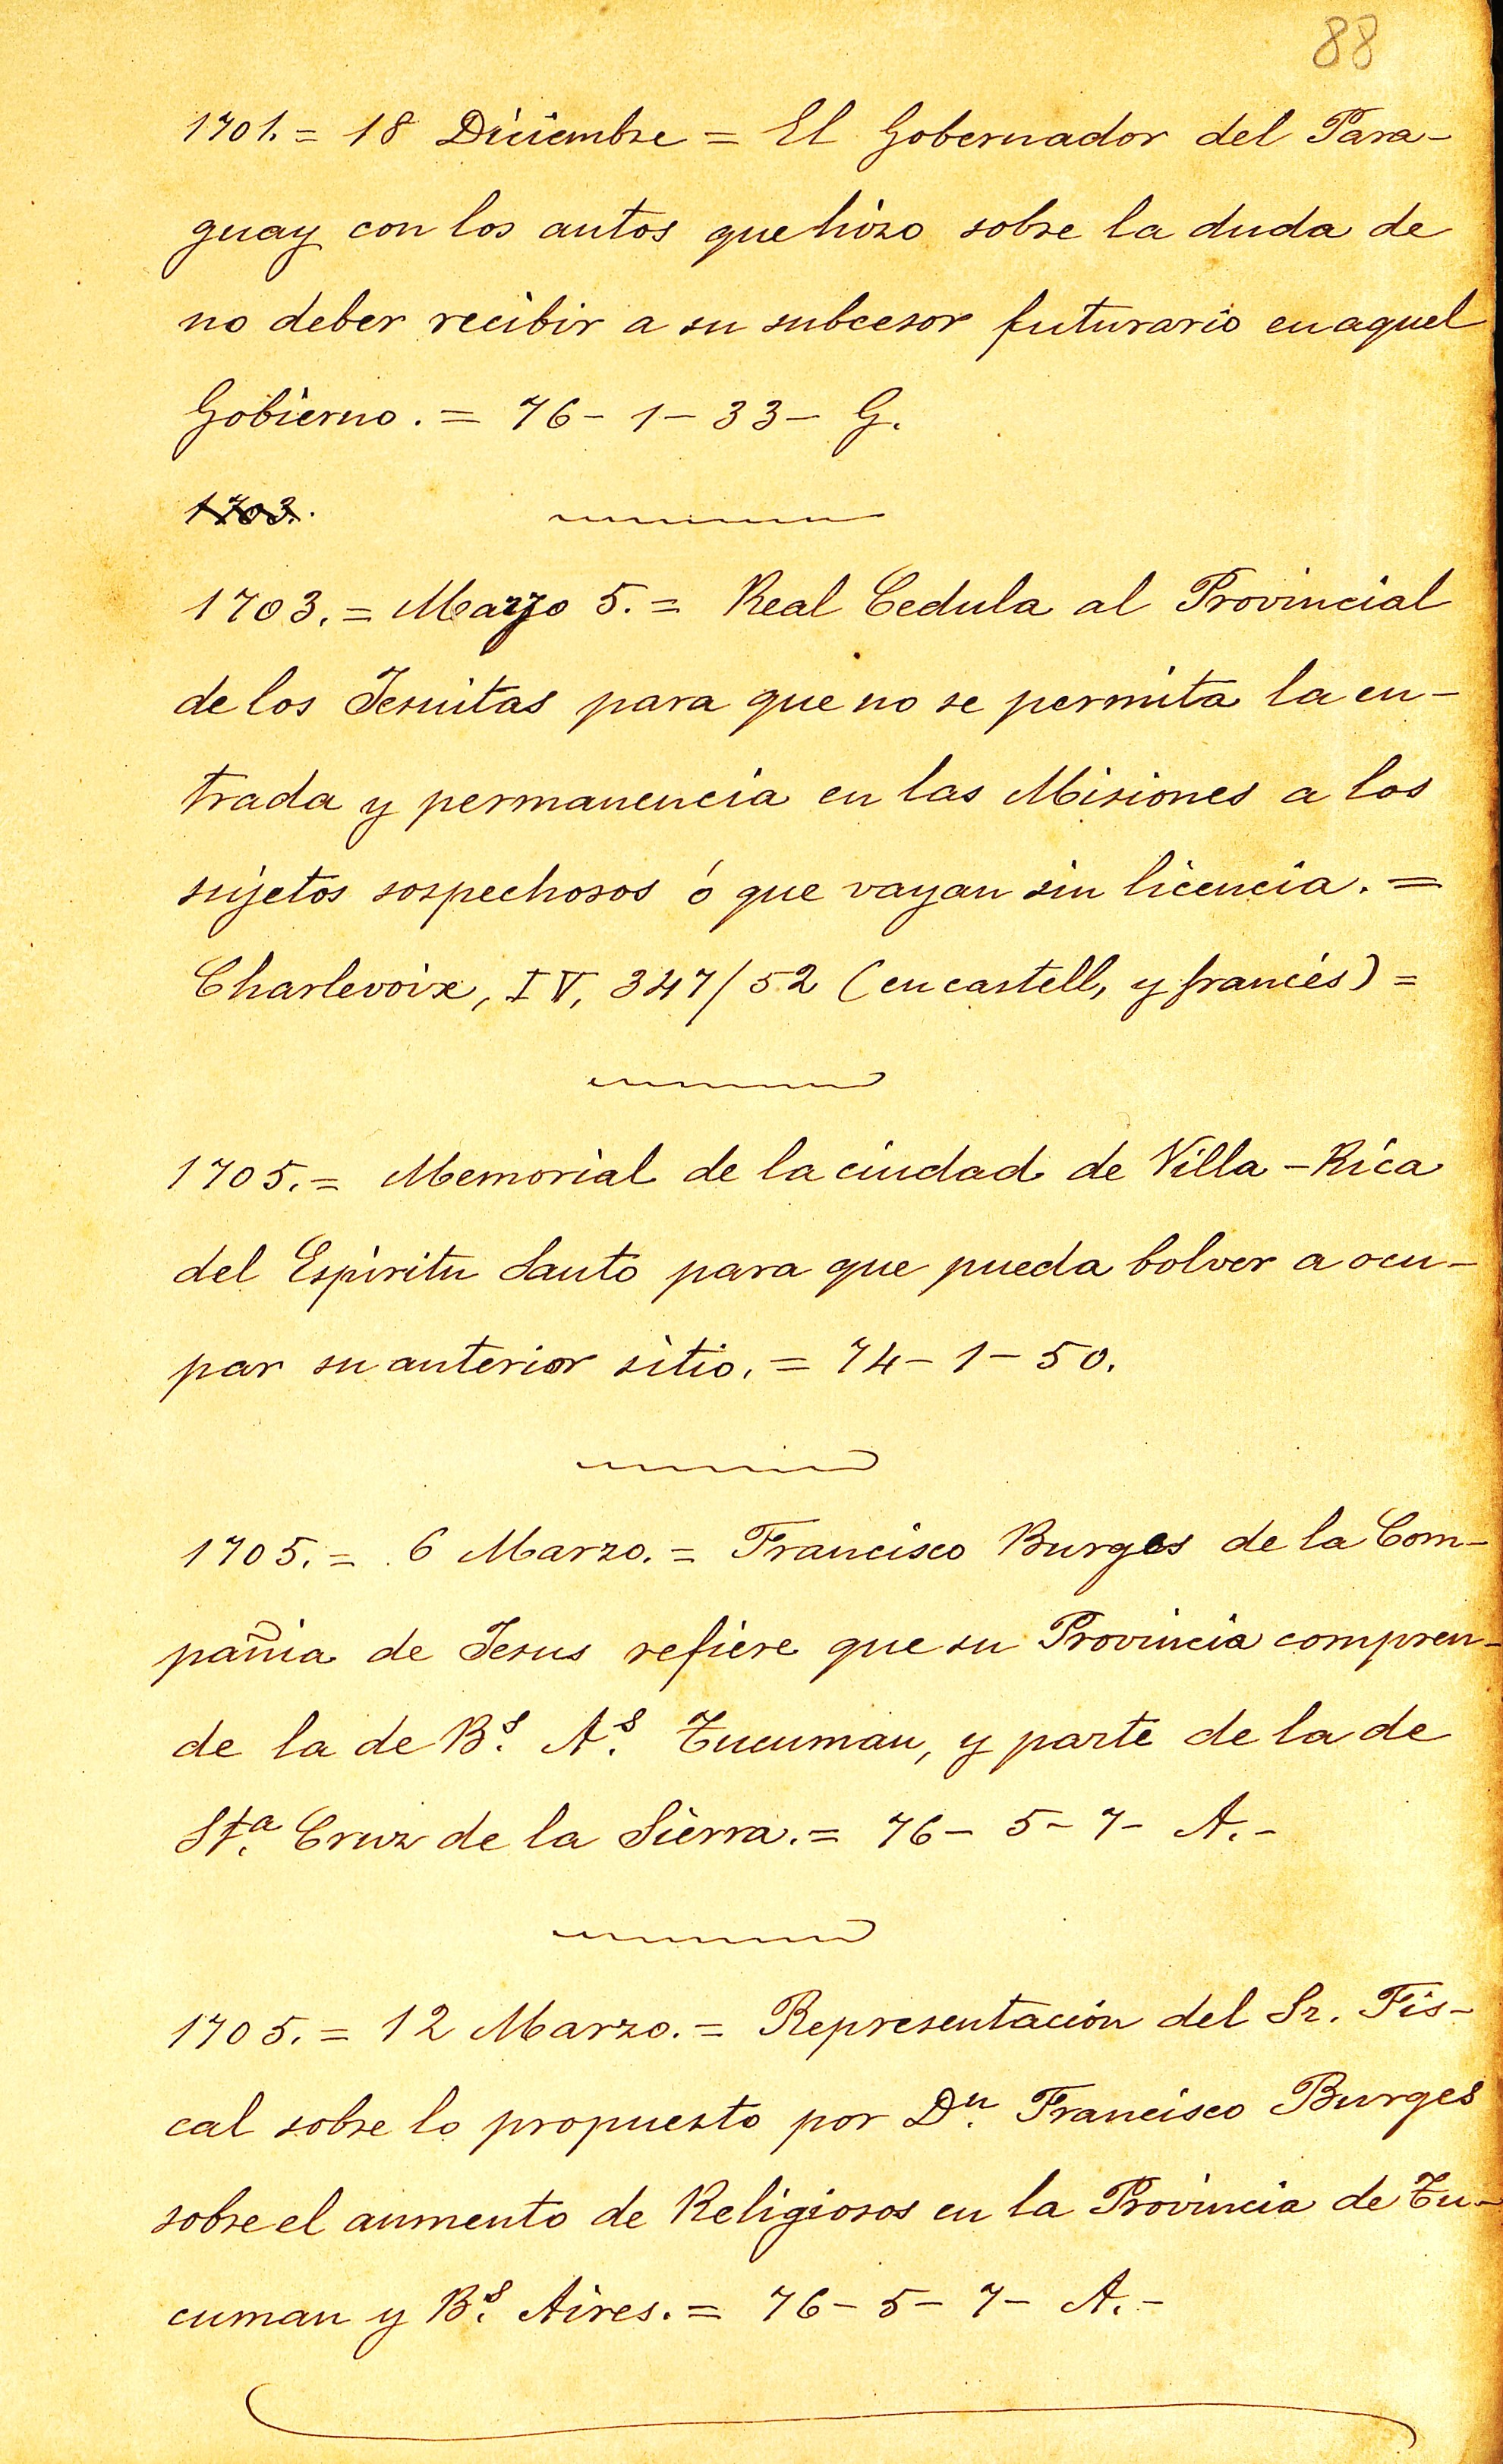 88
1701. = 18 Diciembre = El Gobernador del Para-
guay con los autos que hizo sobre la duda de
no deber recibir a su subcesor futurario en aquel
Gobierno. = 76 - 1 - 33 - G.
1703.
1703. = Marzo 5. = Real Cedula al Provincial
de los Jesuitas para que no se permita la en-
trada y permanencia en las Misiones a los
sujetos sospechosos ó que vayan sin licencia. =
Charlevoix, IV, 347/52 (en castell, y francés) =
1705. = Memorial de la ciudad de Villa-Rica
del Espiritu Santo para que pueda bolver a ocu-
par su anterior sitio. = 74 - 1 - 50.
1705. = 6 Marzo. = Francisco Burges de la Com-
pañia de Jesus refiere que su Provincia compren-
de la de Bs. As. Tucuman, y parte de la de
Sta. Cruz de la Sierra. = 76 - 5 - 7 - A. -
1705. = 12 Marzo. = Representación del Sr. Fis-
cal sobre lo propuesto por Dn. Francisco Burges
sobre el aumento de Religiosos en la Provincia de Tu-
cuman y Bs. Aires. = 76 - 5 - 7 - A. -